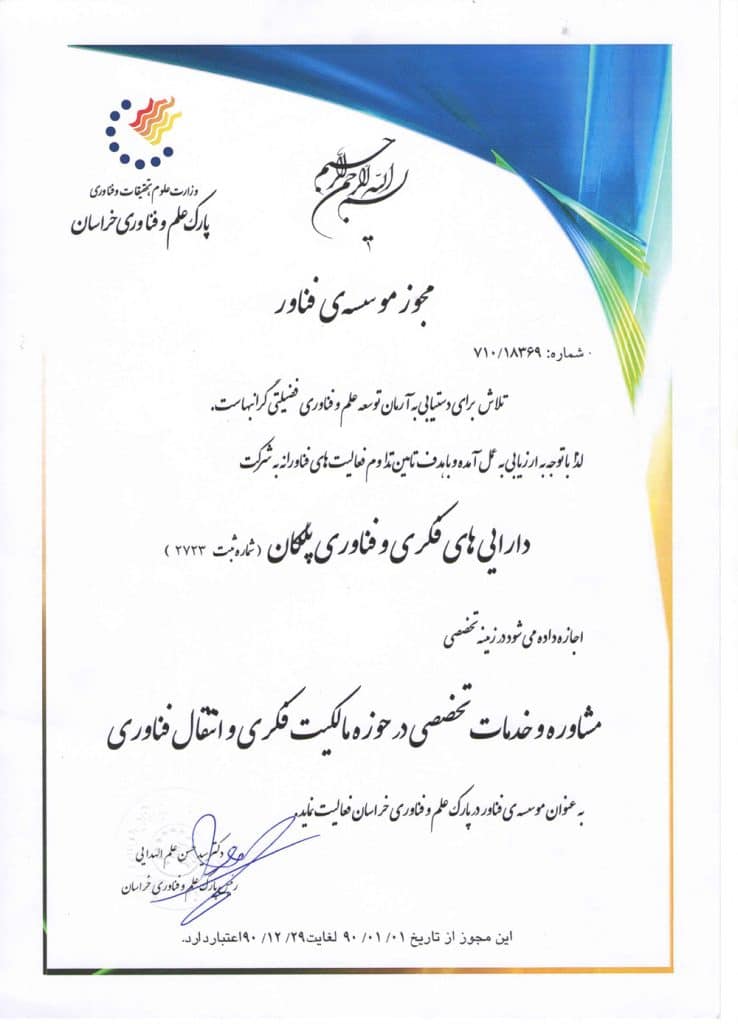 بسم الله الرحمن الرحیم
وزارت علوم، تحقیقات و فناوری
پارک علم و فناوری خراسان
مجوز موسسه‌ی فناور
شماره: ۷۱۰/۱۸۳۶۹
تلاش برای دستیابی به آرمان توسعه علم و فناوری فضیلتی گرانبهاست.
لذا با توجه به ارزیابی به عمل آمده و با هدف تامین تداوم فعالیت های فناورانه به شرکت
دارایی های فکری و فناوری پلکان (شماره ثبت ۲۷۲۳)
اجازه داده می شود در زمینه تخصصی
مشاوره و خدمات تخصصی در حوزه مالکیت فکری و انتقال فناوری
به عنوان موسسه‌ی فناور در پارک علم و فناوری خراسان فعالیت نماید.
دکتر سید حسن علم الهدایی
رئیس پارک علم و فناوری خراسان
این مجوز از تاریخ ۰۱/ ۰۱/ ۹۰ لغایت ۲۹/ ۱۲/ ۹۰ اعتبار دارد.